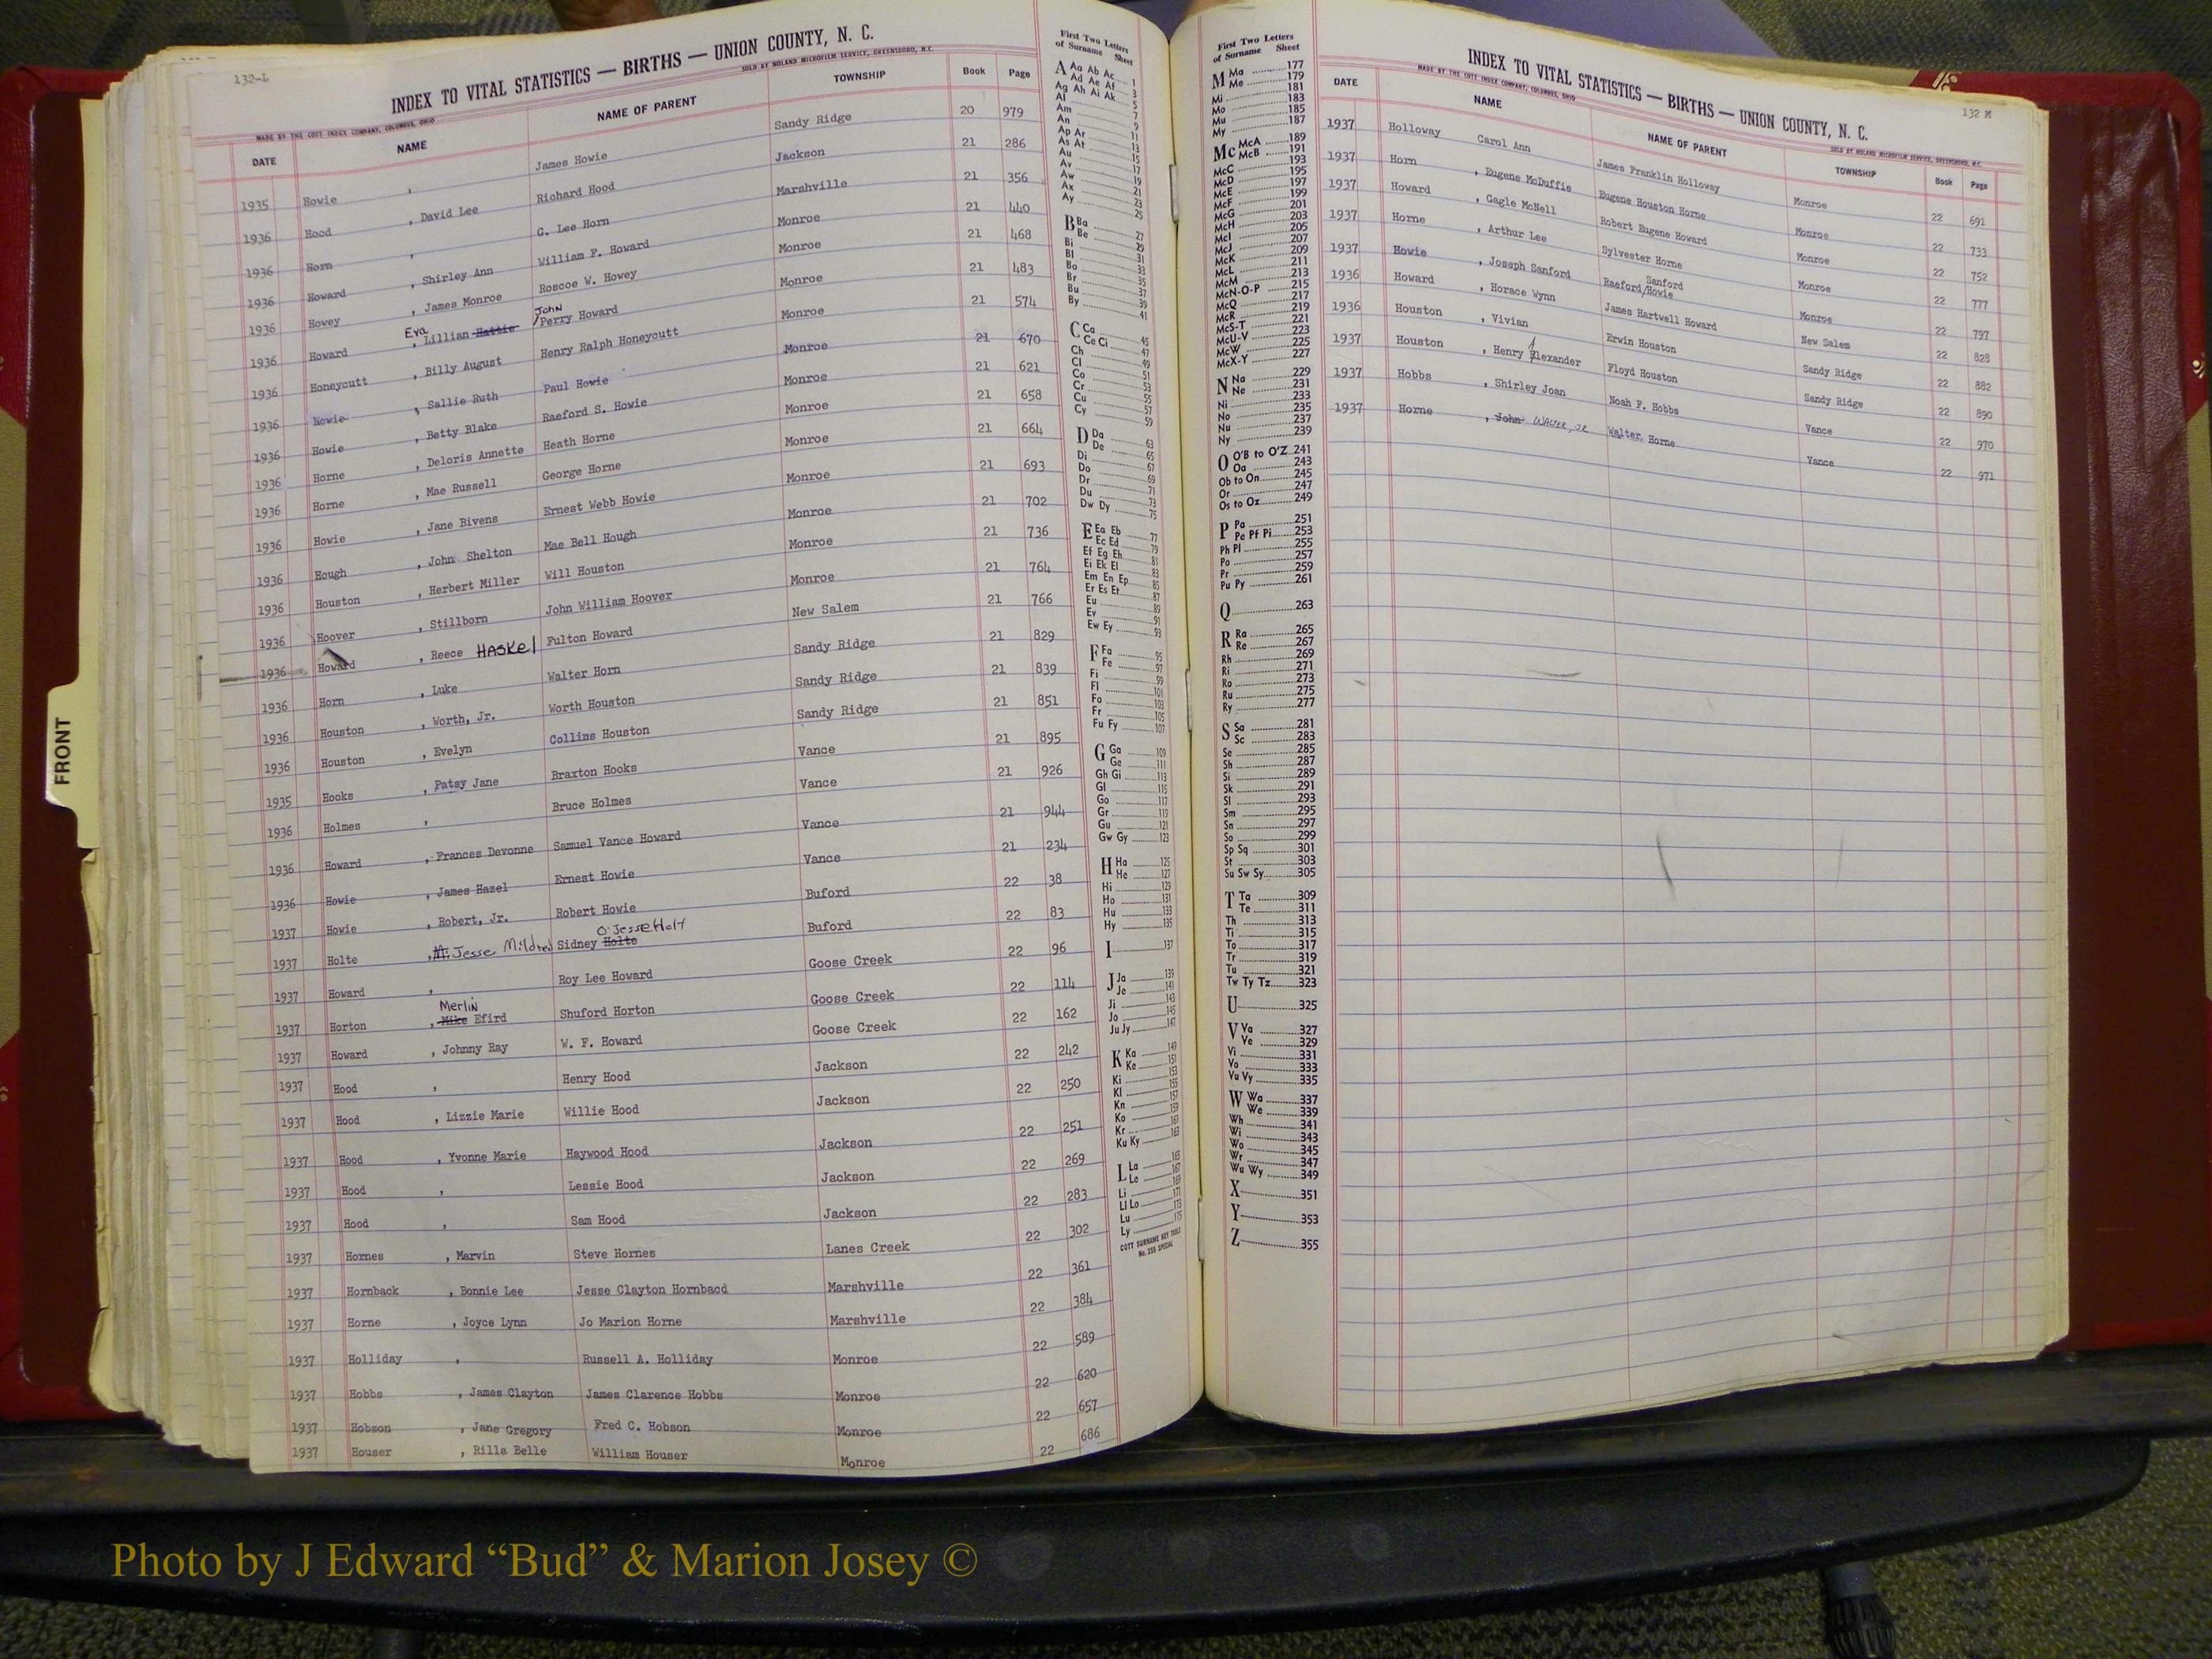 132-L
INDEX TO VITAL STATISTICS — BIRTHS — UNION COUNTY, N. C.
MADE BY THE COTT INDEX COMPANY, COLUMBUS, OHIO SOLD BY NOLAND MICROFILM SERVICE, GREENSBORO, N.C.
DATE NAME NAME OF PARENT TOWNSHIP Book Page
1935 Howie , James Howie Sandy Ridge 20 979
1936 Hood , David Lee Richard Hood Jackson 21 286
1936 Horn , G. Lee Horn Marshville 21 356
1936 Howard , Shirley Ann William F. Howard Monroe 21 440
1936 Howey , James Monroe Roscoe W. Howey Monroe 21 468
1936 Howard , Eva Lillian Hattie John Perry Howard Monroe 21 483
1936 Honeycutt , Billy August Henry Ralph Honeycutt Monroe 21 574
1936 Howie , Sallie Ruth Paul Howie Monroe 21 670
1936 Howie , Betty Blake Raeford S. Howie Monroe 21 621
1936 Horne , Deloris Annette Heath Horne Monroe 21 658
1936 Horne , Mae Russell George Horne Monroe 21 664
1936 Howie , Jane Bivens Ernest Webb Howie Monroe 21 693
1936 Hough , John Shelton Mae Bell Hough Monroe 21 702
1936 Houston , Herbert Miller Will Houston Monroe 21 736
1936 Hoover , Stillborn John William Hoover Monroe 21 764
1936 Howard , Reece HASKel Fulton Howard New Salem 21 766
1936 Horn , Luke Walter Horn Sandy Ridge 21 829
1936 Houston , Worth, Jr. Worth Houston Sandy Ridge 21 839
1936 Houston , Evelyn Collins Houston Sandy Ridge 21 851
1935 Hooks , Patsy Jane Braxton Hooks Vance 21 895
1936 Holmes , Bruce Holmes Vance 21 926
1936 Howard , Frances Devonne Samuel Vance Howard Vance 21 944
1936 Howie , James Hazel Ernest Howie Vance 21 234
1937 Howie , Robert, Jr. Robert Howie Buford 22 38
1937 Holte , Jesse Mildred Sidney Holte O'Jesse Holt Buford 22 83
1937 Howard , Roy Lee Howard Goose Creek 22 96
1937 Horton , Merlin Mike Efird Shuford Horton Goose Creek 22 114
1937 Howard , Johnny Ray W. F. Howard Goose Creek 22 162
1937 Hood , Henry Hood Jackson 22 242
1937 Hood , Lizzie Marie Willie Hood Jackson 22 250
1937 Hood , Yvonne Marie Haywood Hood Jackson 22 251
1937 Hood , Lessie Hood Jackson 22 269
1937 Hood , Sam Hood Jackson 22 283
1937 Hornes , Marvin Steve Hornes Lanes Creek 22 302
1937 Hornback , Bonnie Lee Jesse Clayton Hornbacd Marshville 22 361
1937 Horne , Joyce Lynn Jo Marion Horne Marshville 22 384
1937 Holliday , Russell A. Holliday Monroe 22 589
1937 Hobbs , James Clayton James Clarence Hobbs Monroe 22 620
1937 Hobson , Jane Gregory Fred C. Hobson Monroe 22 657
1937 Houser , Rilla Belle William Houser Monroe 22 686
First Two Letters
of Surname Sheet
A Aa Ab Ac 1
Ad Ae Af 3
Ag Ah Ai Ak 5
Al 7
Am 9
An 11
Ap Ar 13
As At 15
Au 17
Av 19
Aw 21
Ax 23
Ay 25
B Ba 27
Be 29
Bi 31
Bl 33
Bo 35
Br 37
Bu 39
By 41
C Ca 45
Ce Ci 47
Ch 49
Cl 51
Co 53
Cr 55
Cu 57
Cy 59
D Da 63
De 65
Di 67
Do 69
Dr 71
Du 73
Dw Dy 75
E Ea Eb 77
Ec Ed 79
Ef Eg Eh 81
Ei Ek El 83
Em En Ep 85
Er Es Et 87
Eu 89
Ev 91
Ew Ey 93
F Fa 95
Fe 97
Fi 99
Fl 101
Fo 103
Fr 105
Fu Fy 107
G Ga 109
Ge 111
Gh Gi 113
Gl 115
Go 117
Gr 119
Gu 121
Gw Gy 123
H Ha 125
He 127
Hi 129
Ho 131
Hu 133
Hy 135
I 137
J Ja 139
Je 141
Ji 143
Jo 145
Ju Jy 147
K Ka 149
Ke 151
Ki 153
Kl 155
Kn 157
Ko 159
Kr 161
Ku Ky 163
L La 165
Le 167
Li 169
Ll Lo 171
Lu 173
Ly 175
COTT SURNAME KEY TABLE
No. 358 SPECIAL
First Two Letters
of Surname Sheet
M Ma 177
Me 179
Mi 181
Mo 183
Mu 185
My 187
Mc McA 189
McB 191
McC 193
McD 195
McE 197
McF 199
McG 201
McH 203
McI 205
McJ 207
McK 209
McL 211
McM 213
McN-O-P 215
McQ 217
McR 219
McS-T 221
McU-V 223
McW 225
McX-Y 227
N Na 229
Ne 231
Ni 233
No 235
Nu 237
Ny 239
O O'B to O'Z 241
Oa 243
Ob to On 245
Or 247
Os to Oz 249
P Pa 251
Pe Pf Pi 253
Ph Pl 255
Po 257
Pr 259
Pu Py 261
Q 263
R Ra 265
Re 267
Rh 269
Ri 271
Ro 273
Ru 275
Ry 277
S Sa 281
Sc 283
Se 285
Sh 287
Si 289
Sk 291
Sl 293
Sm 295
Sn 297
So 299
Sp Sq 301
St 303
Su Sw Sy 305
T Ta 309
Te 311
Th 313
Ti 315
To 317
Tr 319
Tu 321
Tw Ty Tz 323
U 325
V Va 327
Ve 329
Vi 331
Vo 333
Vu Vy 335
W Wa 337
We 339
Wh 341
Wi 343
Wo 345
Wr 347
Wu Wy 349
X 351
Y 353
Z 355
132 M
INDEX TO VITAL STATISTICS — BIRTHS — UNION COUNTY, N. C.
MADE BY THE COTT INDEX COMPANY, COLUMBUS, OHIO SOLD BY NOLAND MICROFILM SERVICE, GREENSBORO, N.C.
DATE NAME NAME OF PARENT TOWNSHIP Book Page
1937 Holloway Carol Ann James Franklin Holloway Monroe 22 691
1937 Horn , Eugene McDuffie Eugene Houston Horne Monroe 22 733
1937 Howard , Gagle McNell Robert Eugene Howard Monroe 22 752
1937 Horne , Arthur Lee Sylvester Horne Monroe 22 777
1937 Howie , Joseph Sanford Raeford/Howie Sanford Monroe 22 797
1936 Howard , Horace Wynn James Hartwell Howard New Salem 22 828
1936 Houston , Vivian Erwin Houston Sandy Ridge 22 882
1937 Houston , Henry Alexander Floyd Houston Sandy Ridge 22 890
1937 Hobbs , Shirley Joan Noah F. Hobbs Vance 22 970
1937 Horne , John WALTER, JR Walter Horne Vance 22 971
FRONT
Photo by J Edward “Bud” & Marion Josey ©